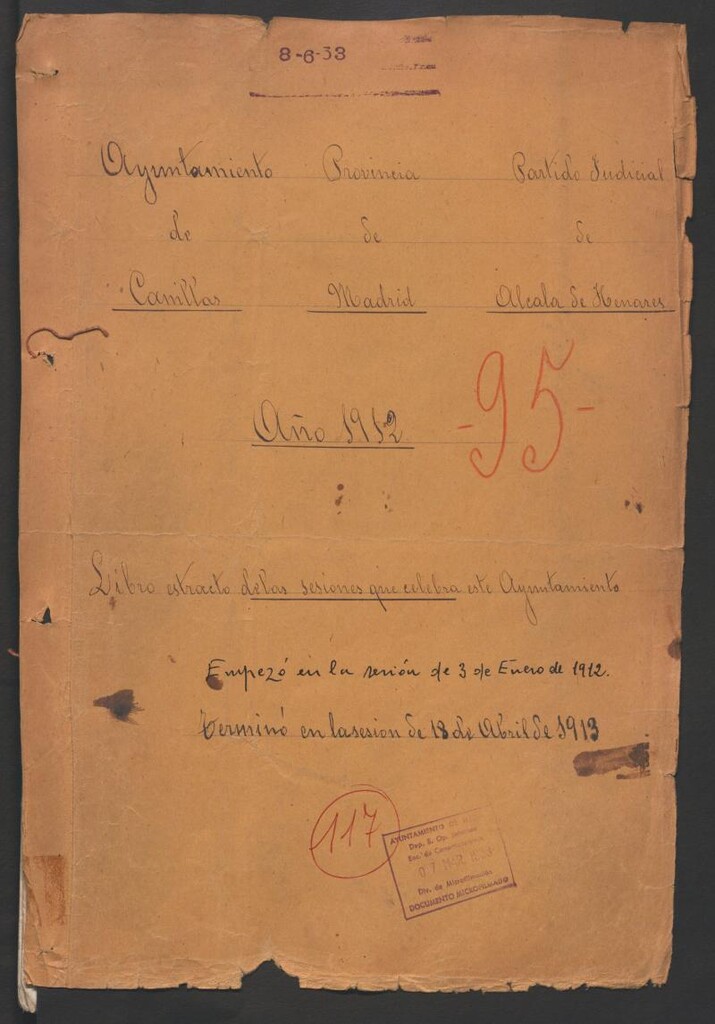 8-6-33
Ayuntamiento Provincia Partido Judicial
de de de
Canillas Madrid Alcala de Henares
Año 1912
-95-
Libro estracto de las sesiones que celebra este Ayuntamiento
Empezó en la sesión de 3 de Enero de 1912.
Terminó en la sesion de 18 de Abril de 1913
117
AYUNTAMIENTO DE
Dep. E. Op.
Div. de Microfilmación
DOCUMENTO MICROFILMADO